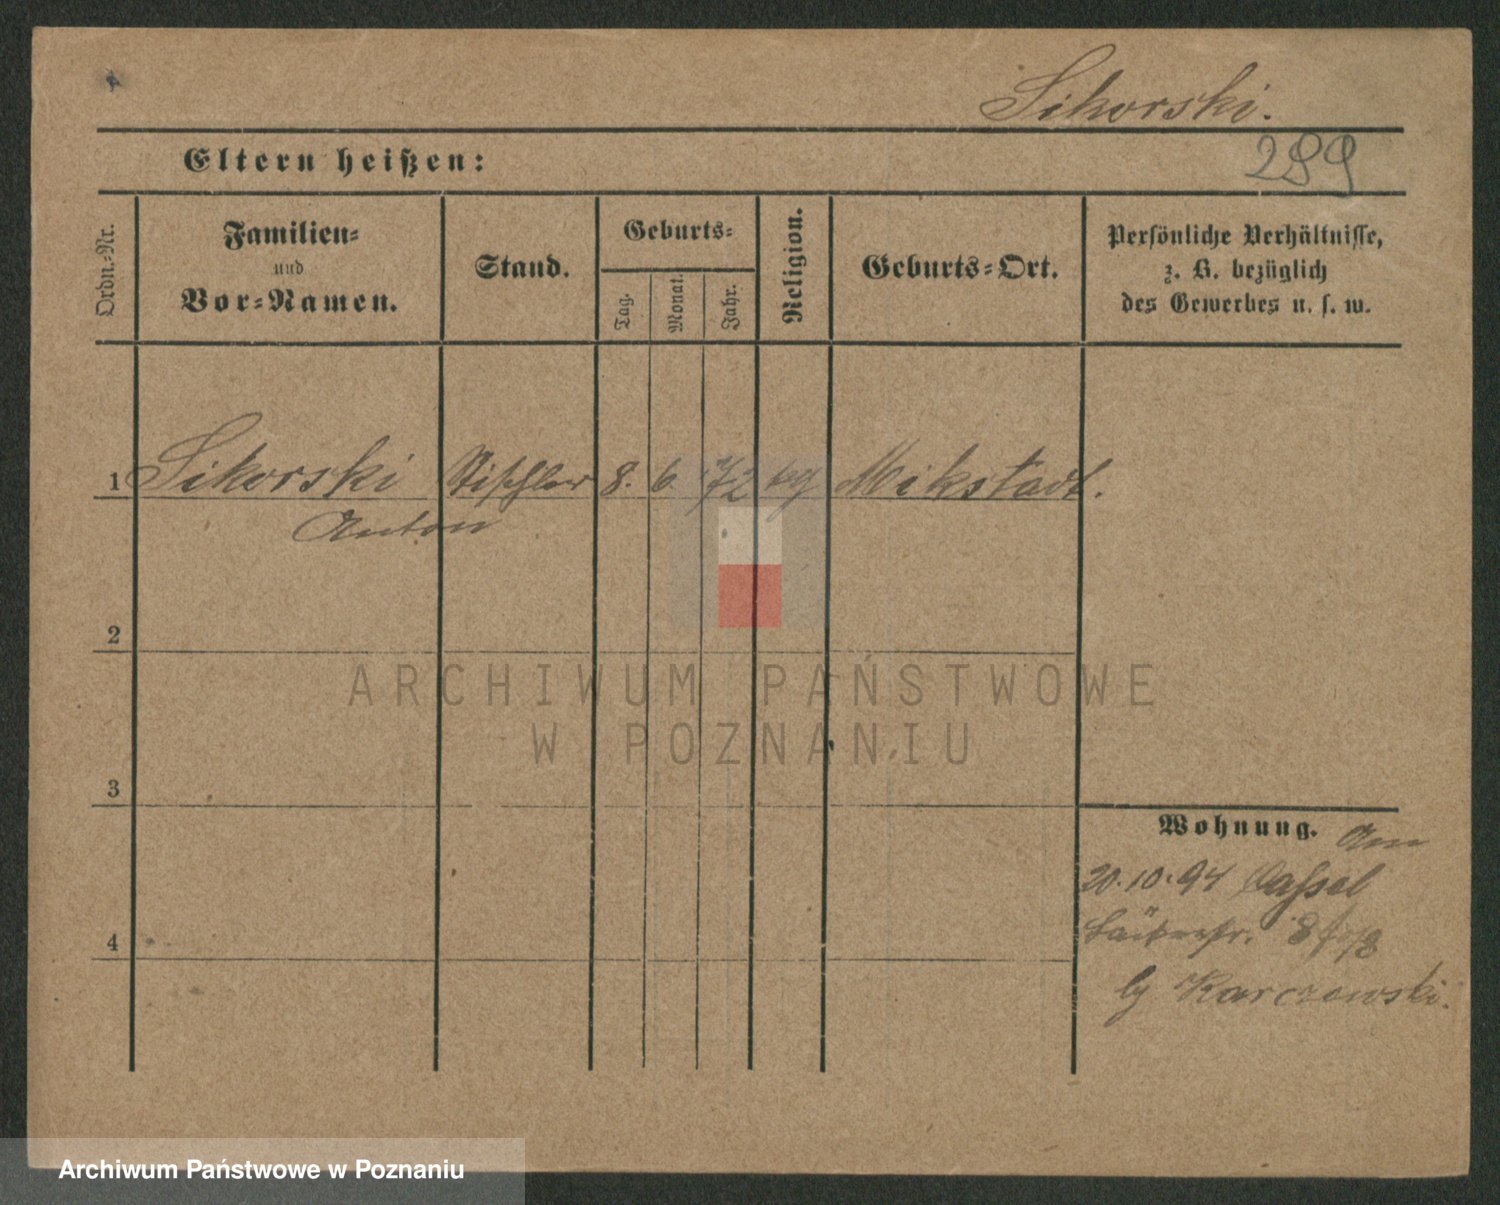 Sikorski.
289
Eltern heißen:
Ordn.-Nr.
Familien-
und
Vor-Namen.
Stand.
Geburts-
Tag.
Monat.
Jahr.
Religion.
Geburts-Ort.
Persönliche Verhältnisse,
z. B. bezüglich
des Gewerbes u. s. w.
1 Sikorski Tischler 8. 6. 72 kg Mikstadt.
Anton
2
ARCHIWUM PAŃSTWOWE
W POZNANIU
3
Wohnung. Am
20.10.94 Cassel
8
by Karczewski.
4
Archiwum Państwowe w Poznaniu